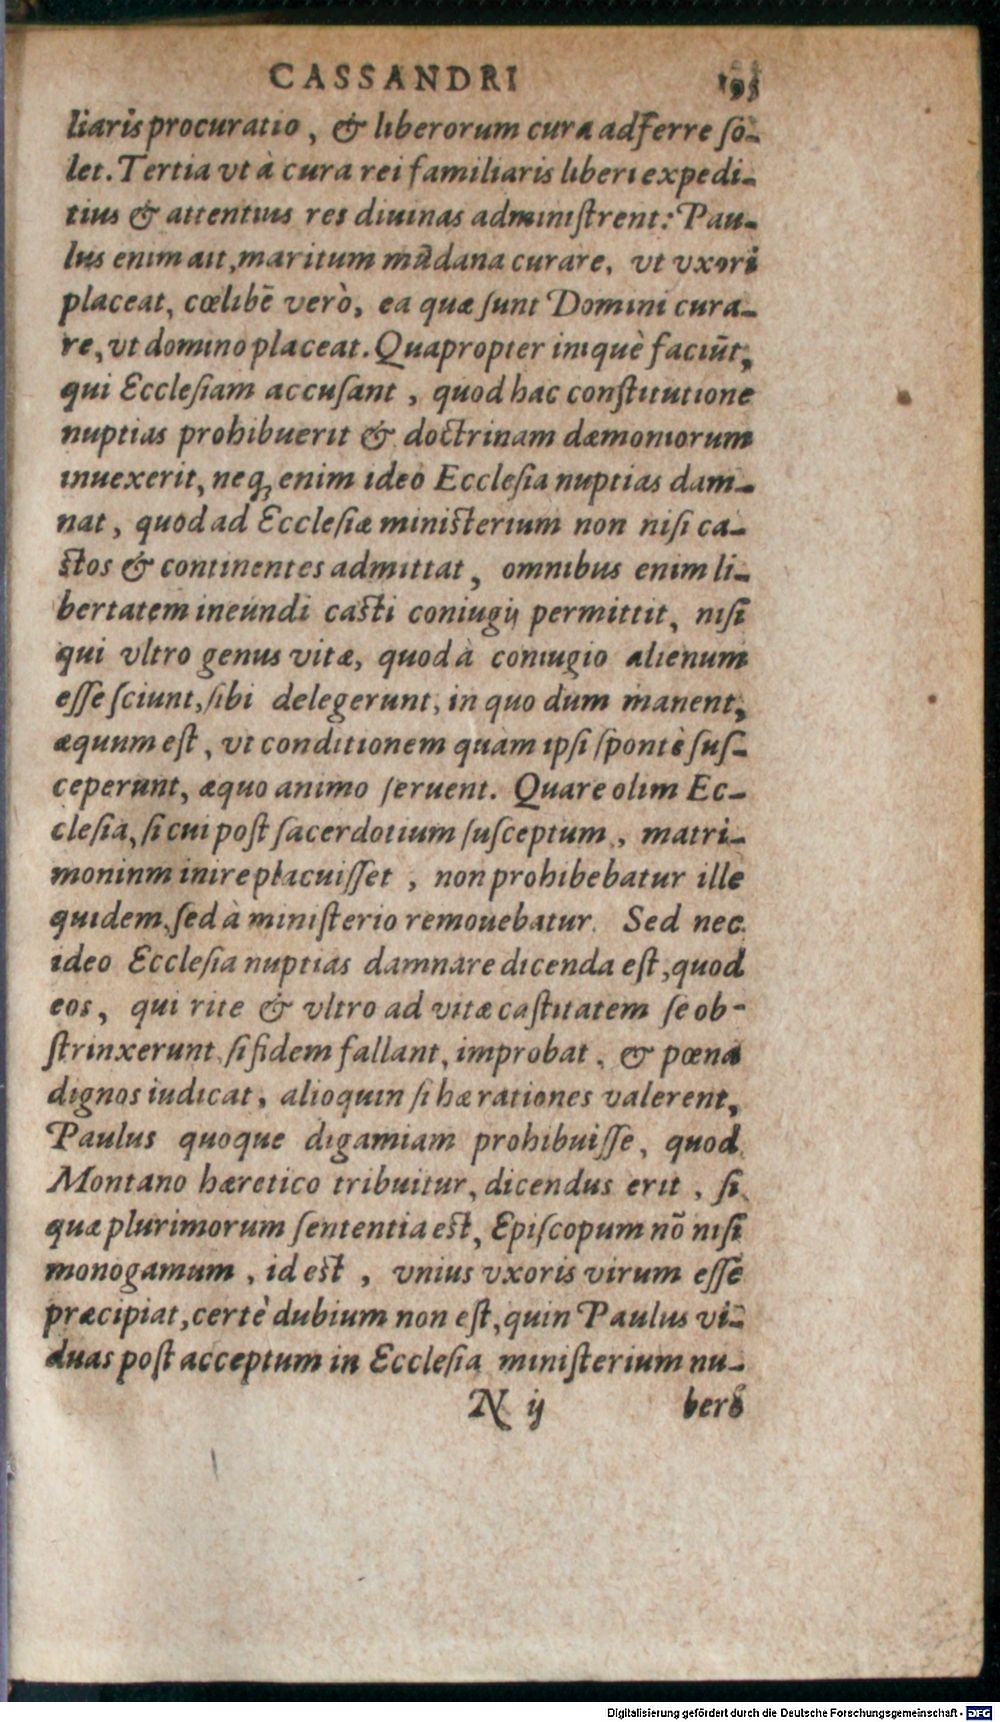 CASSANDRI 195
liaris procuratio, & liberorum cura adferre so-
let. Tertia vt à cura rei familiaris liberi expedi-
tius & attentius res diuinas administrent: Pau-
lus enim ait, maritum mūdana curare, vt vxori
placeat, cœlibē verò, ea quæ sunt Domini cura-
re, vt domino placeat. Quapropter iniquè faciūt,
qui Ecclesiam accusant, quod hac constitutione
nuptias prohibuerit & doctrinam dæmoniorum
inuexerit, neq; enim ideo Ecclesia nuptias dam-
nat, quod ad Ecclesiæ ministerium non nisi ca-
stos & continentes admittat, omnibus enim li-
bertatem ineundi casti coniugij permittit, nisi
qui vltro genus vitæ, quod à coniugio alienum
esse sciunt, sibi delegerunt, in quo dum manent,
æquum est, vt conditionem quam ipsi spontè sus-
ceperunt, æquo animo seruent. Quare olim Ec-
clesia, si cui post sacerdotium susceptum, matri-
moninm inire placuisset, non prohibebatur ille
quidem, sed à ministerio remouebatur. Sed nec
ideo Ecclesia nuptias damnare dicenda est, quod
eos, qui rite & vltro ad vitæ castitatem se ob-
strinxerunt, si fidem fallant, improbat, & pœna
dignos iudicat, alioquin si hæ rationes valerent,
Paulus quoque digamiam prohibuisse, quod
Montano hæretico tribuitur, dicendus erit, si
quæ plurimorum sententia est, Episcopum nō nisi
monogamum, id est, vnius vxoris virum esse
præcipiat, certè dubium non est, quin Paulus vi-
duas post acceptum in Ecclesia ministerium nu-
N ij bere
Digitalisierung gefördert durch die Deutsche Forschungsgemeinschaft - DFG